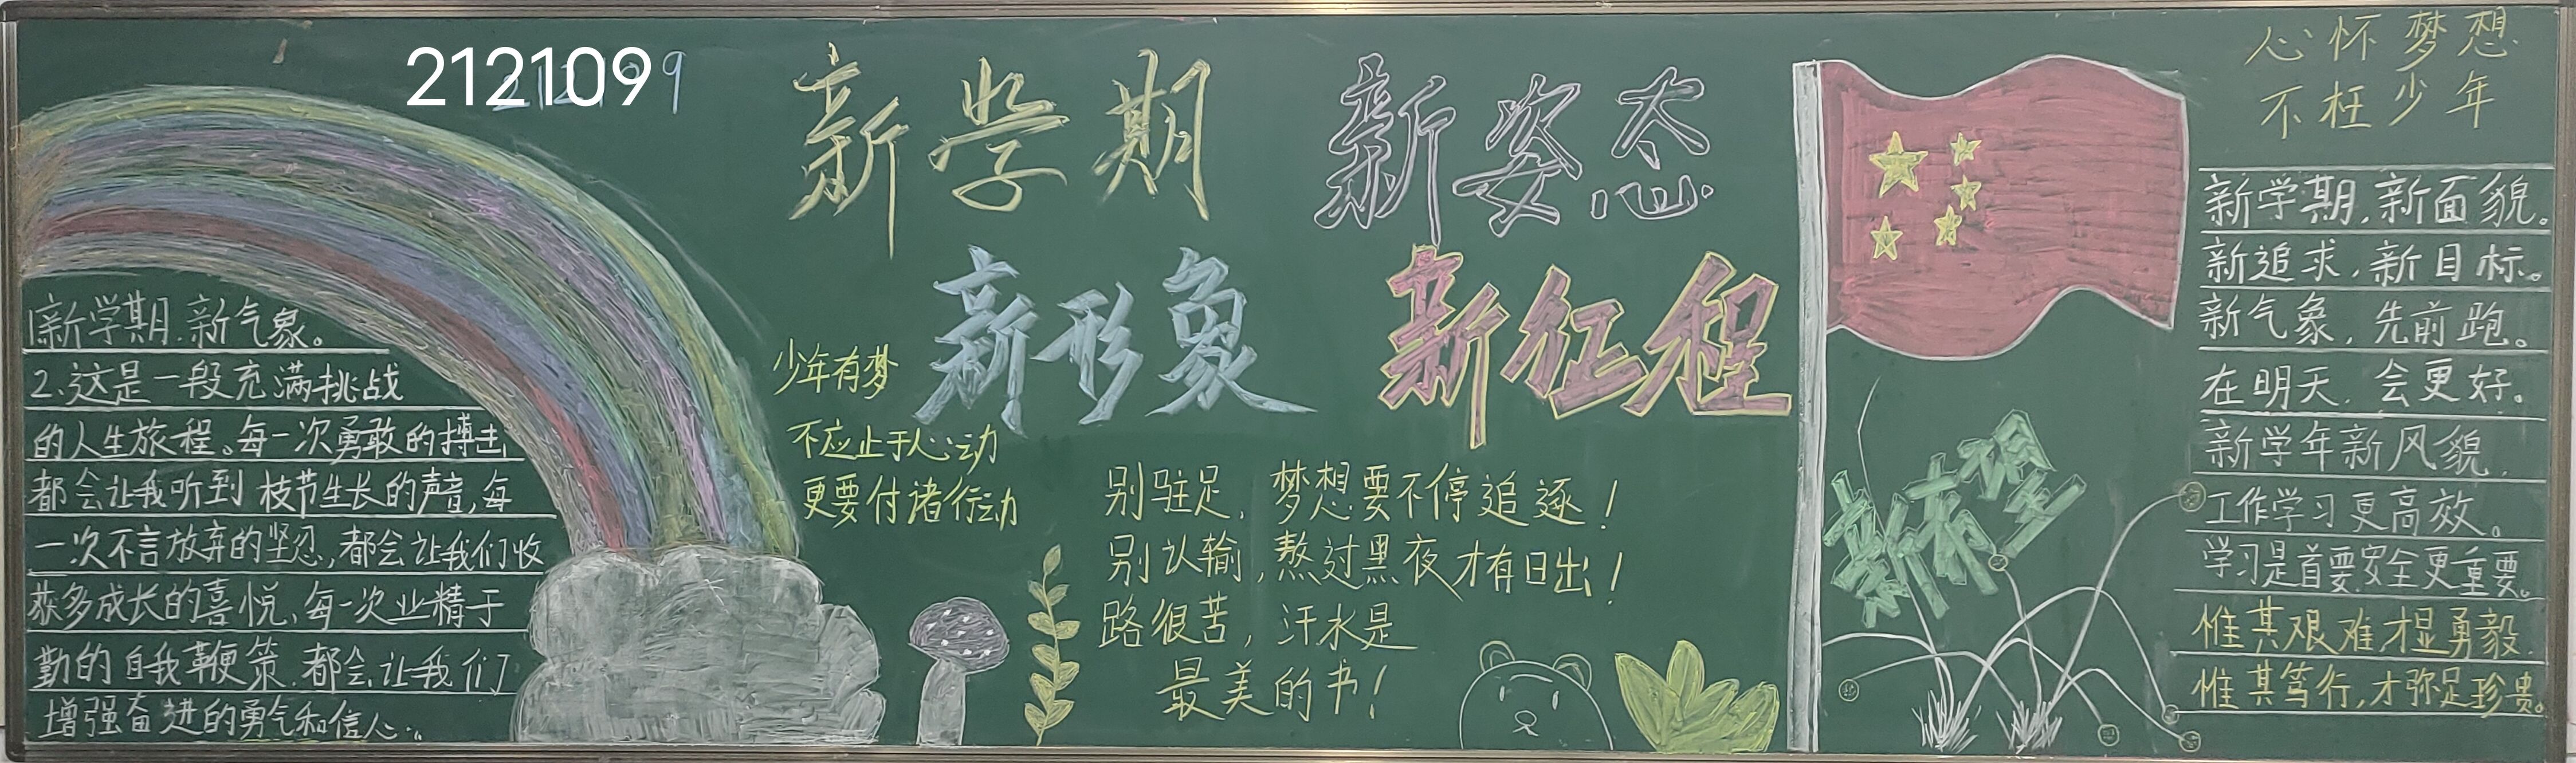 212109
新学期 新姿态
新形象 新征程
1.新学期.新气象。
2.这是一段充满挑战
的人生旅程。每一次勇敢的搏击
都会让我听到枝节生长的声音,每
一次不言放弃的坚忍,都会让我们收
获多成长的喜悦,每一次业精于
勤的自我鞭策.都会让我们
增强奋进的勇气和信心...
少年有梦
不应止于心动
更要付诸行动
别驻足,梦想要不停追逐!
别认输,熬过黑夜才有日出!
路很苦,汗水是
最美的书!
新希望
心怀梦想
不枉少年
新学期,新面貌。
新追求,新目标。
新气象,先前跑。
在明天,会更好。
新学年新风貌,
工作学习更高效。
学习是首要安全更重要。
惟其艰难才显勇毅.
惟其笃行,才弥足珍贵。